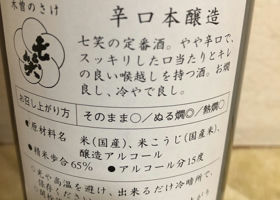 木曽のさけ
七笑
辛口本醸造
七笑の定番酒。やや辛口で、
スッキリした口当たりとキレ
の良い喉越しを持つ酒。お燗
良し、冷やで良し。
お召し上がり方
そのまま○／ぬる燗◎／熱燗○
●原材料名
米(国産)、米こうじ(国産米)、
醸造アルコール
●精米歩合65% ●アルコール分15度
光や高温を避け、出来るだけ冷暗所で、